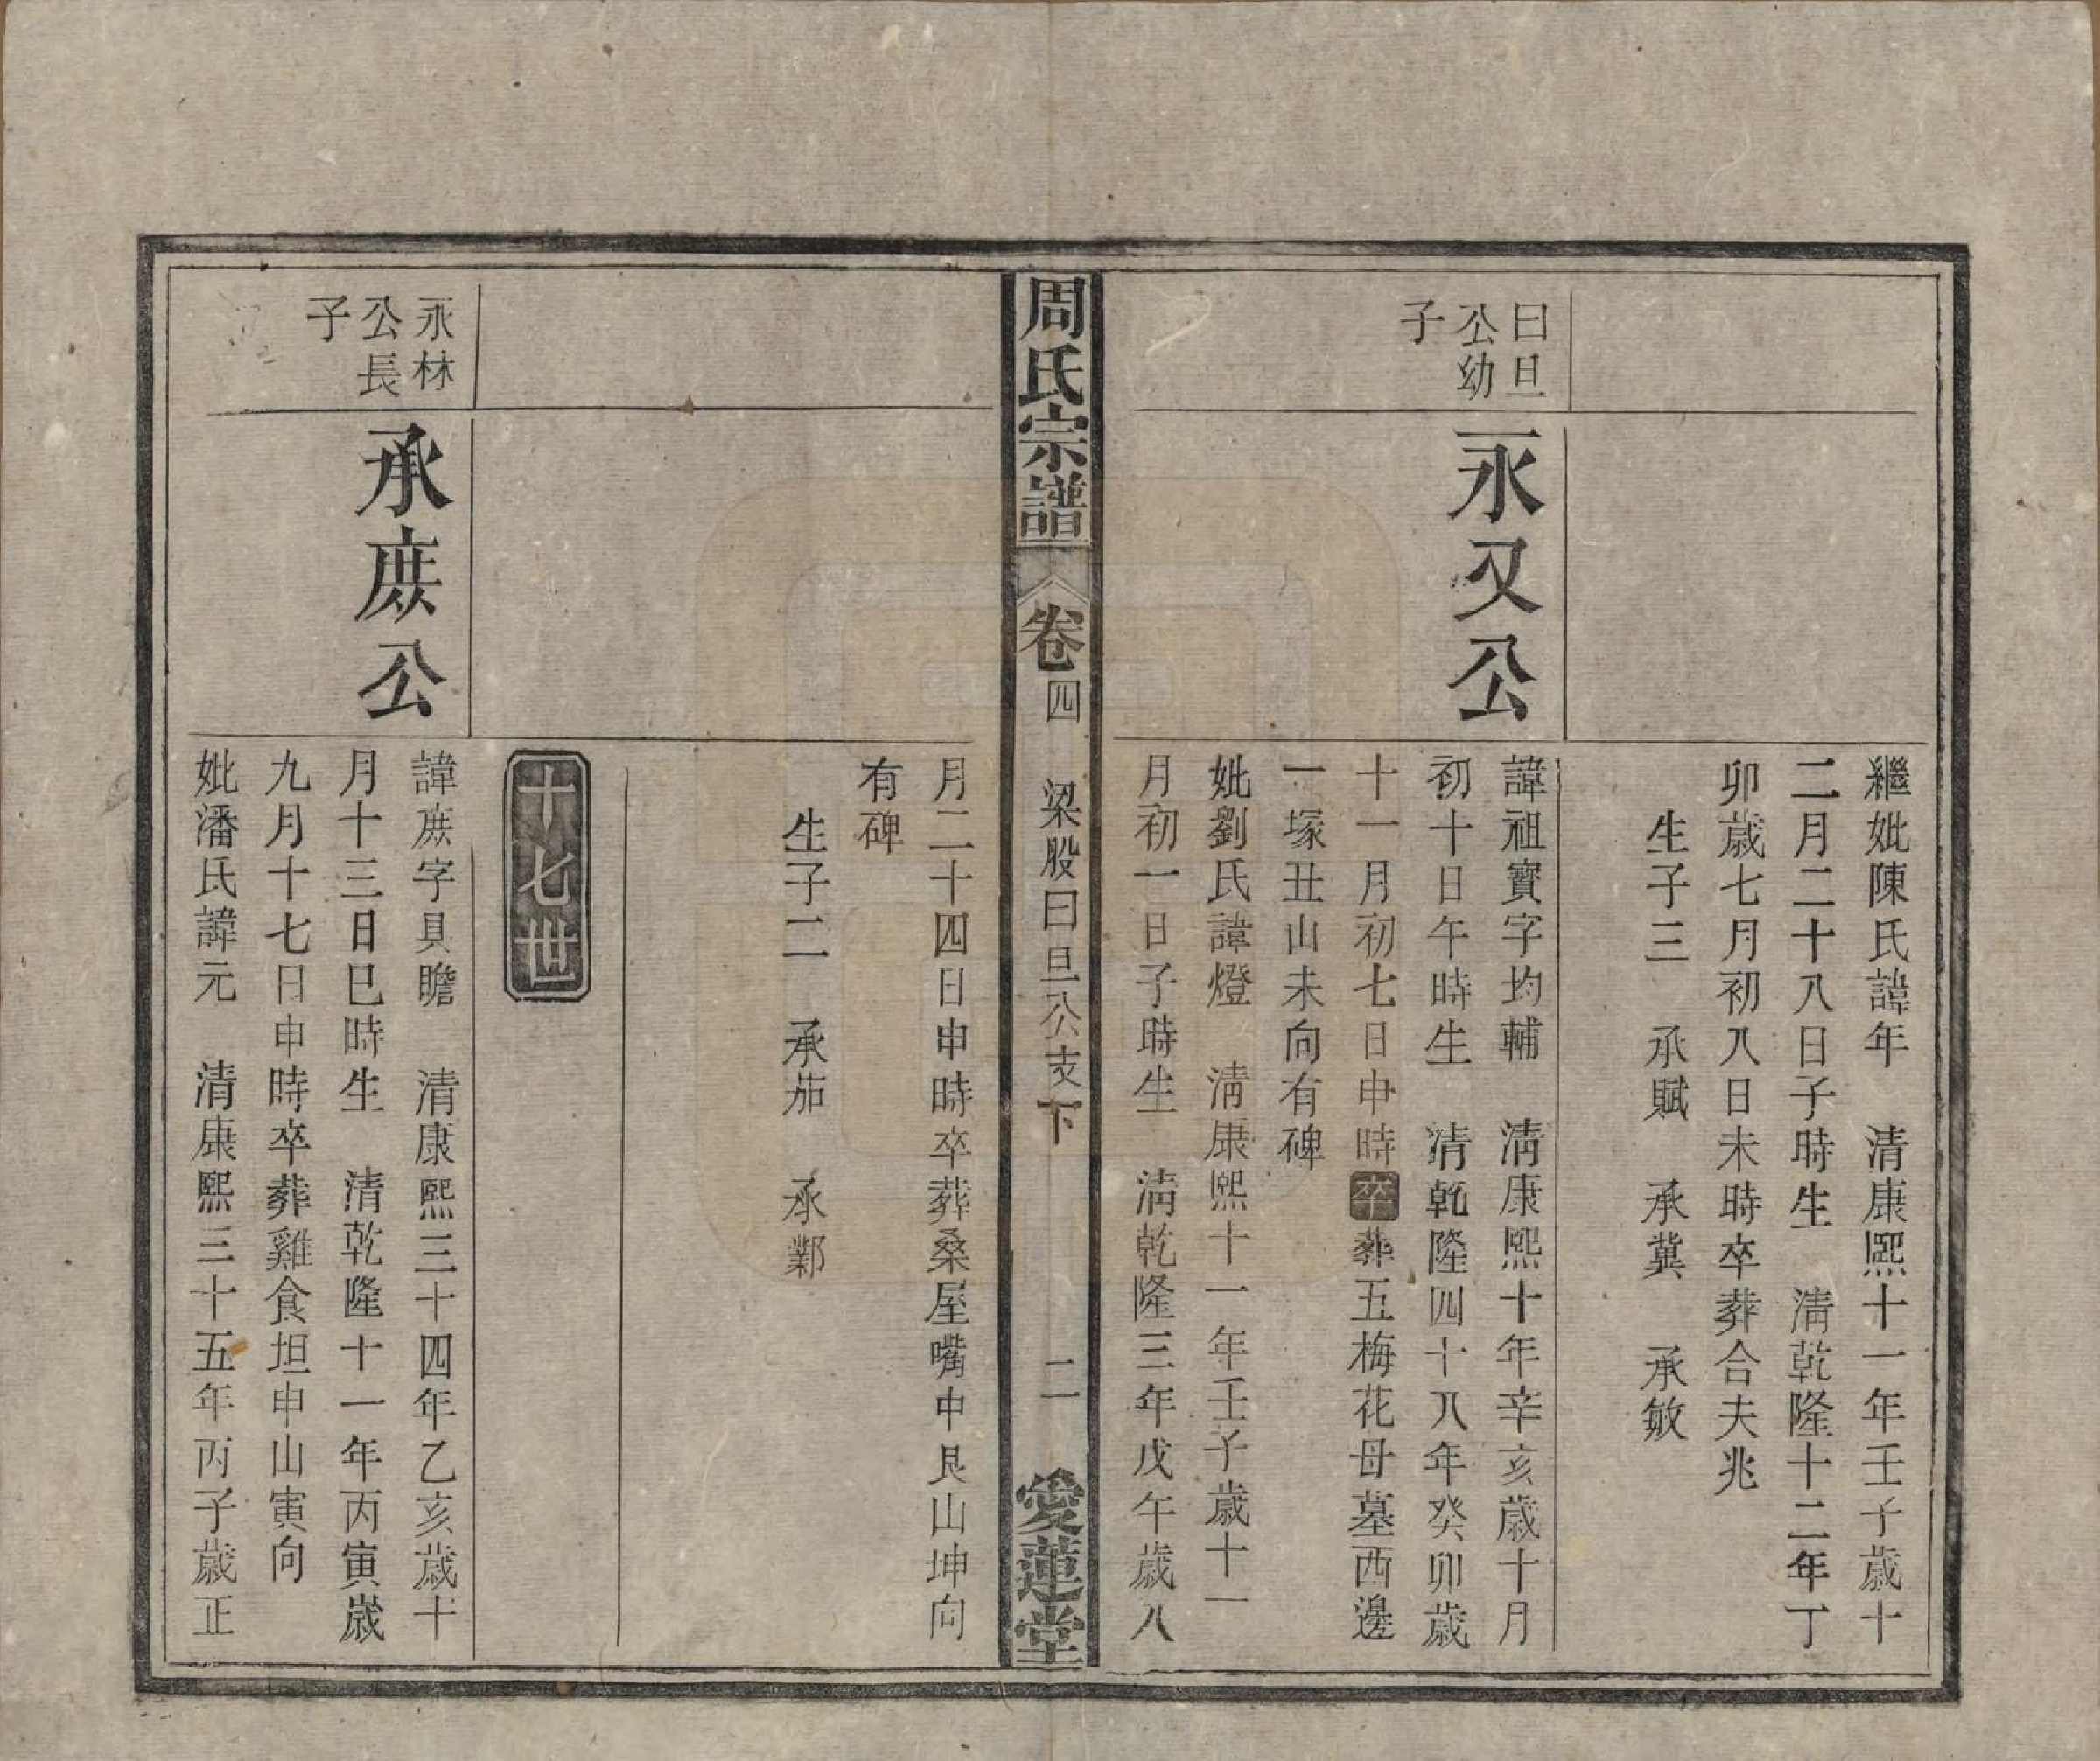 繼妣陳氏諱年　清康熙十一年壬子歲十
二月二十八日子時生　淸乾隆十二年丁
卯歲七月初八日未時卒葬合夫兆
生子三　承賦　承冀　承敏
曰旦
公幼
子
永又公
諱祖寶字均輔　淸康熙十年辛亥歲十月
初十日午時生　清乾隆四十八年癸卯歲
十一月初七日申時卒葬五梅花母墓西邊
一塚丑山未向有碑
妣劉氏諱燈　淸康熙十一年壬子歲十一
月初一日子時生　淸乾隆三年戊午歲八
周氏宗譜　卷四　梁股曰旦公支下　二　愛蓮堂
月二十四日申時卒葬桑屋嘴中艮山坤向
有碑
生子二　承茄　承鄴
十七世
永林
公長
子
承庻公
諱庻字具瞻　清康熙三十四年乙亥歲十
月十三日巳時生　清乾隆十一年丙寅歲
九月十七日申時卒葬雞食坦申山寅向
妣潘氏諱元　清康熙三十五年丙子歲正